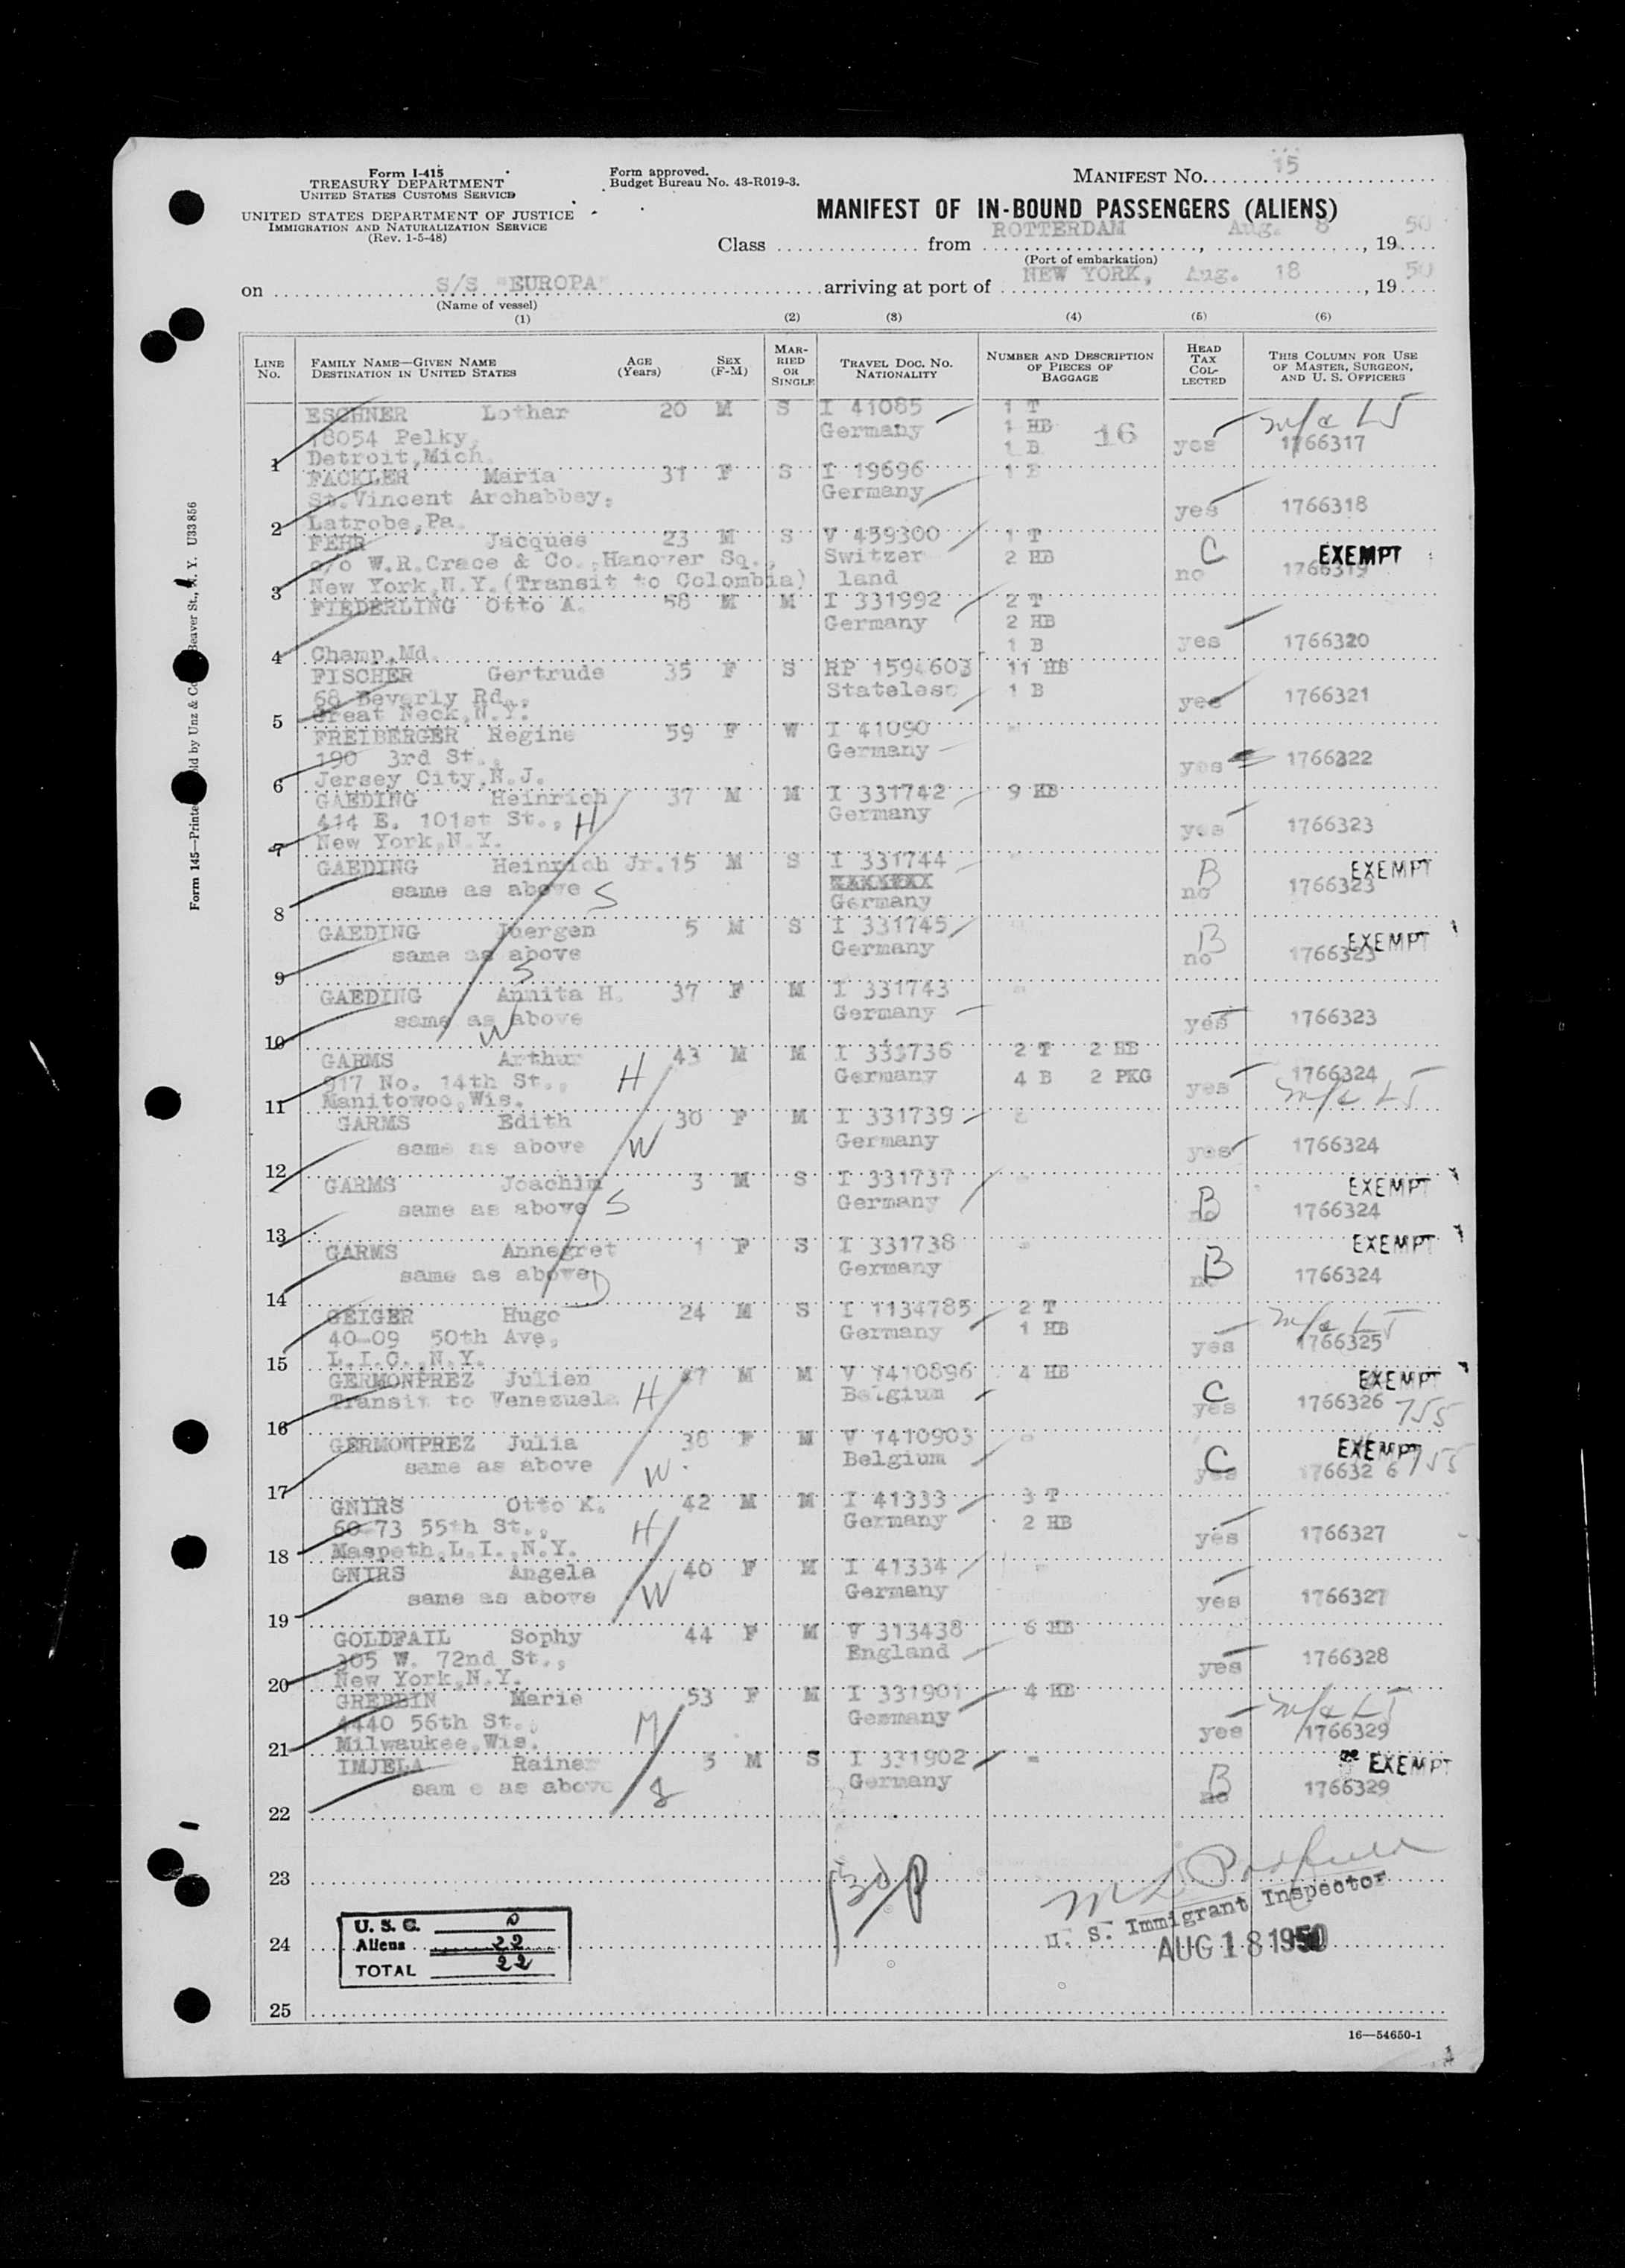 Form I-415
TREASURY DEPARTMENT
UNITED STATES CUSTOMS SERVICE
UNITED STATES DEPARTMENT OF JUSTICE
IMMIGRATION AND NATURALIZATION SERVICE
(Rev. 1-5-48)
Form approved.
Budget Bureau No. 43-R019-3.
MANIFEST No. 15
MANIFEST OF IN-BOUND PASSENGERS (ALIENS)
Class from ROTTERDAM, Aug. 8, 1950
(Port of embarkation)
on S/S "EUROPA" arriving at port of NEW YORK, Aug. 18, 1950
(Name of vessel)
(1) (2) (3) (4) (5) (6)
LINE No. FAMILY NAME—GIVEN NAME DESTINATION IN UNITED STATES AGE (Years) SEX (F-M) MARRIED OR SINGLE TRAVEL DOC. NO. NATIONALITY NUMBER AND DESCRIPTION OF PIECES OF BAGGAGE HEAD TAX COLLECTED THIS COLUMN FOR USE OF MASTER, SURGEON, AND U. S. OFFICERS
ESCHNER Lothar 20 M S I 41085 1 T
18054 Pelky, Germany 1 HB 16
1 Detroit,Mich. 1 B yes 1766317
FACKLER Maria 31 F S I 19696 1 B
St.Vincent Archabbey, Germany
2 Latrobe,Pa. yes 1766318
FEHR Jacques 23 M S V 459300 1 T
c/o W.R.Crace & Co.,Hanover Sq., Switzer 2 HB C EXEMPT
3 New York,N.Y.(Transit to Colombia) land no 1766319
FIEDERLING Otto A. 58 M M I 331992 2 T
Germany 2 HB
4 Champ,Md. 1 B yes 1766320
FISCHER Gertrude 35 F S RP 1594603 11 HB
68 Beverly Rd., Stateless 1 B
5 Great Neck,N.Y. yes 1766321
FREIBERGER Regine 59 F W I 41090 "
190 3rd St., Germany
6 Jersey City,N.J. yes 1766322
GAEDING Heinrich 37 M M I 331742 9 HB
414 E. 101st St., H Germany
7 New York,N.Y. yes 1766323
GAEDING Heinrich Jr. 15 M S I 331744 " B EXEMPT
same as above S no 1766323
8 Germany
GAEDING Juergen 5 M S I 331745 " B EXEMPT
same as above Germany no 1766323
9 S
GAEDING Annita H. 37 F M I 331743 "
same as above Germany yes 1766323
10 W
GARMS Arthur 43 M M I 331736 2 T 2 HB
917 No. 14th St., H Germany 4 B 2 PKG yes 1766324
11 Manitowoc,Wis.
GARMS Edith 30 F M I 331739 "
same as above W Germany yes 1766324
12
GARMS Joachim 3 M S I 331737 " EXEMPT
same as above S Germany B no 1766324
13
GARMS Annegret 1 F S I 331738 " EXEMPT
same as above D Germany B no 1766324
14
GEIGER Hugo 24 M S I 1134785 2 T
40-09 50th Ave, Germany 1 HB yes 1766325
15 L.I.C.,N.Y.
GERMONPREZ Julien 47 M M V 1410896 4 HB EXEMPT
Transit to Venezuela H Belgium C yes 1766326 755
16
GERMONPREZ Julia 38 F M V 1410903 " EXEMPT
same as above W Belgium C yes 176632 6 755
17
GNIRS Otto K. 42 M M I 41333 3 T
60-73 55th St., H Germany 2 HB yes 1766327
18 Maspeth,L.I.,N.Y.
GNIRS Angela 40 F M I 41334 "
same as above W Germany yes 1766327
19
GOLDFAIL Sophy 44 F M V 313438 6 HB
305 W. 72nd St., England yes 1766328
20 New York,N.Y.
GREBBIN Marie 53 F M I 331901 4 HB
4440 56th St., M Germany yes 1766329
21 Milwaukee,Wis.
IMJELA Rainer 3 M S I 331902 " EXEMPT
sam e as above Germany B no 1766329
22
23
24
25
U. S. C. 0
Aliens 22
TOTAL 22
U. S. Immigrant Inspector
AUG 18 1950
16—54650-1
Form 145—Printed Sold by Unz & Co Beaver St., N. Y. U33856